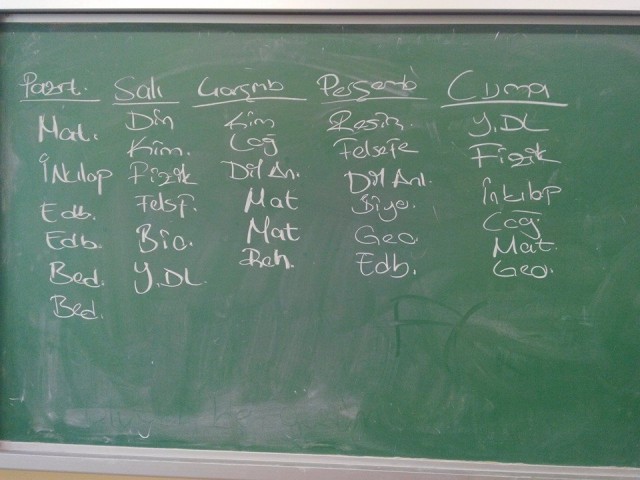 Pazrt. Salı Çarşmb Perşemb Cuma
Mat. Din Kim Resim Y.DL
İnkılop Kim. Coğ Felsefe Fizik
Edb. Fizik Dil An. Dil Anl. İnkılop
Edb. Felsf. Mat Biyo. Coğ
Bed. Bio. Mat Geo. Mat.
Bed. Y.DL Reh. Edb. Geo.